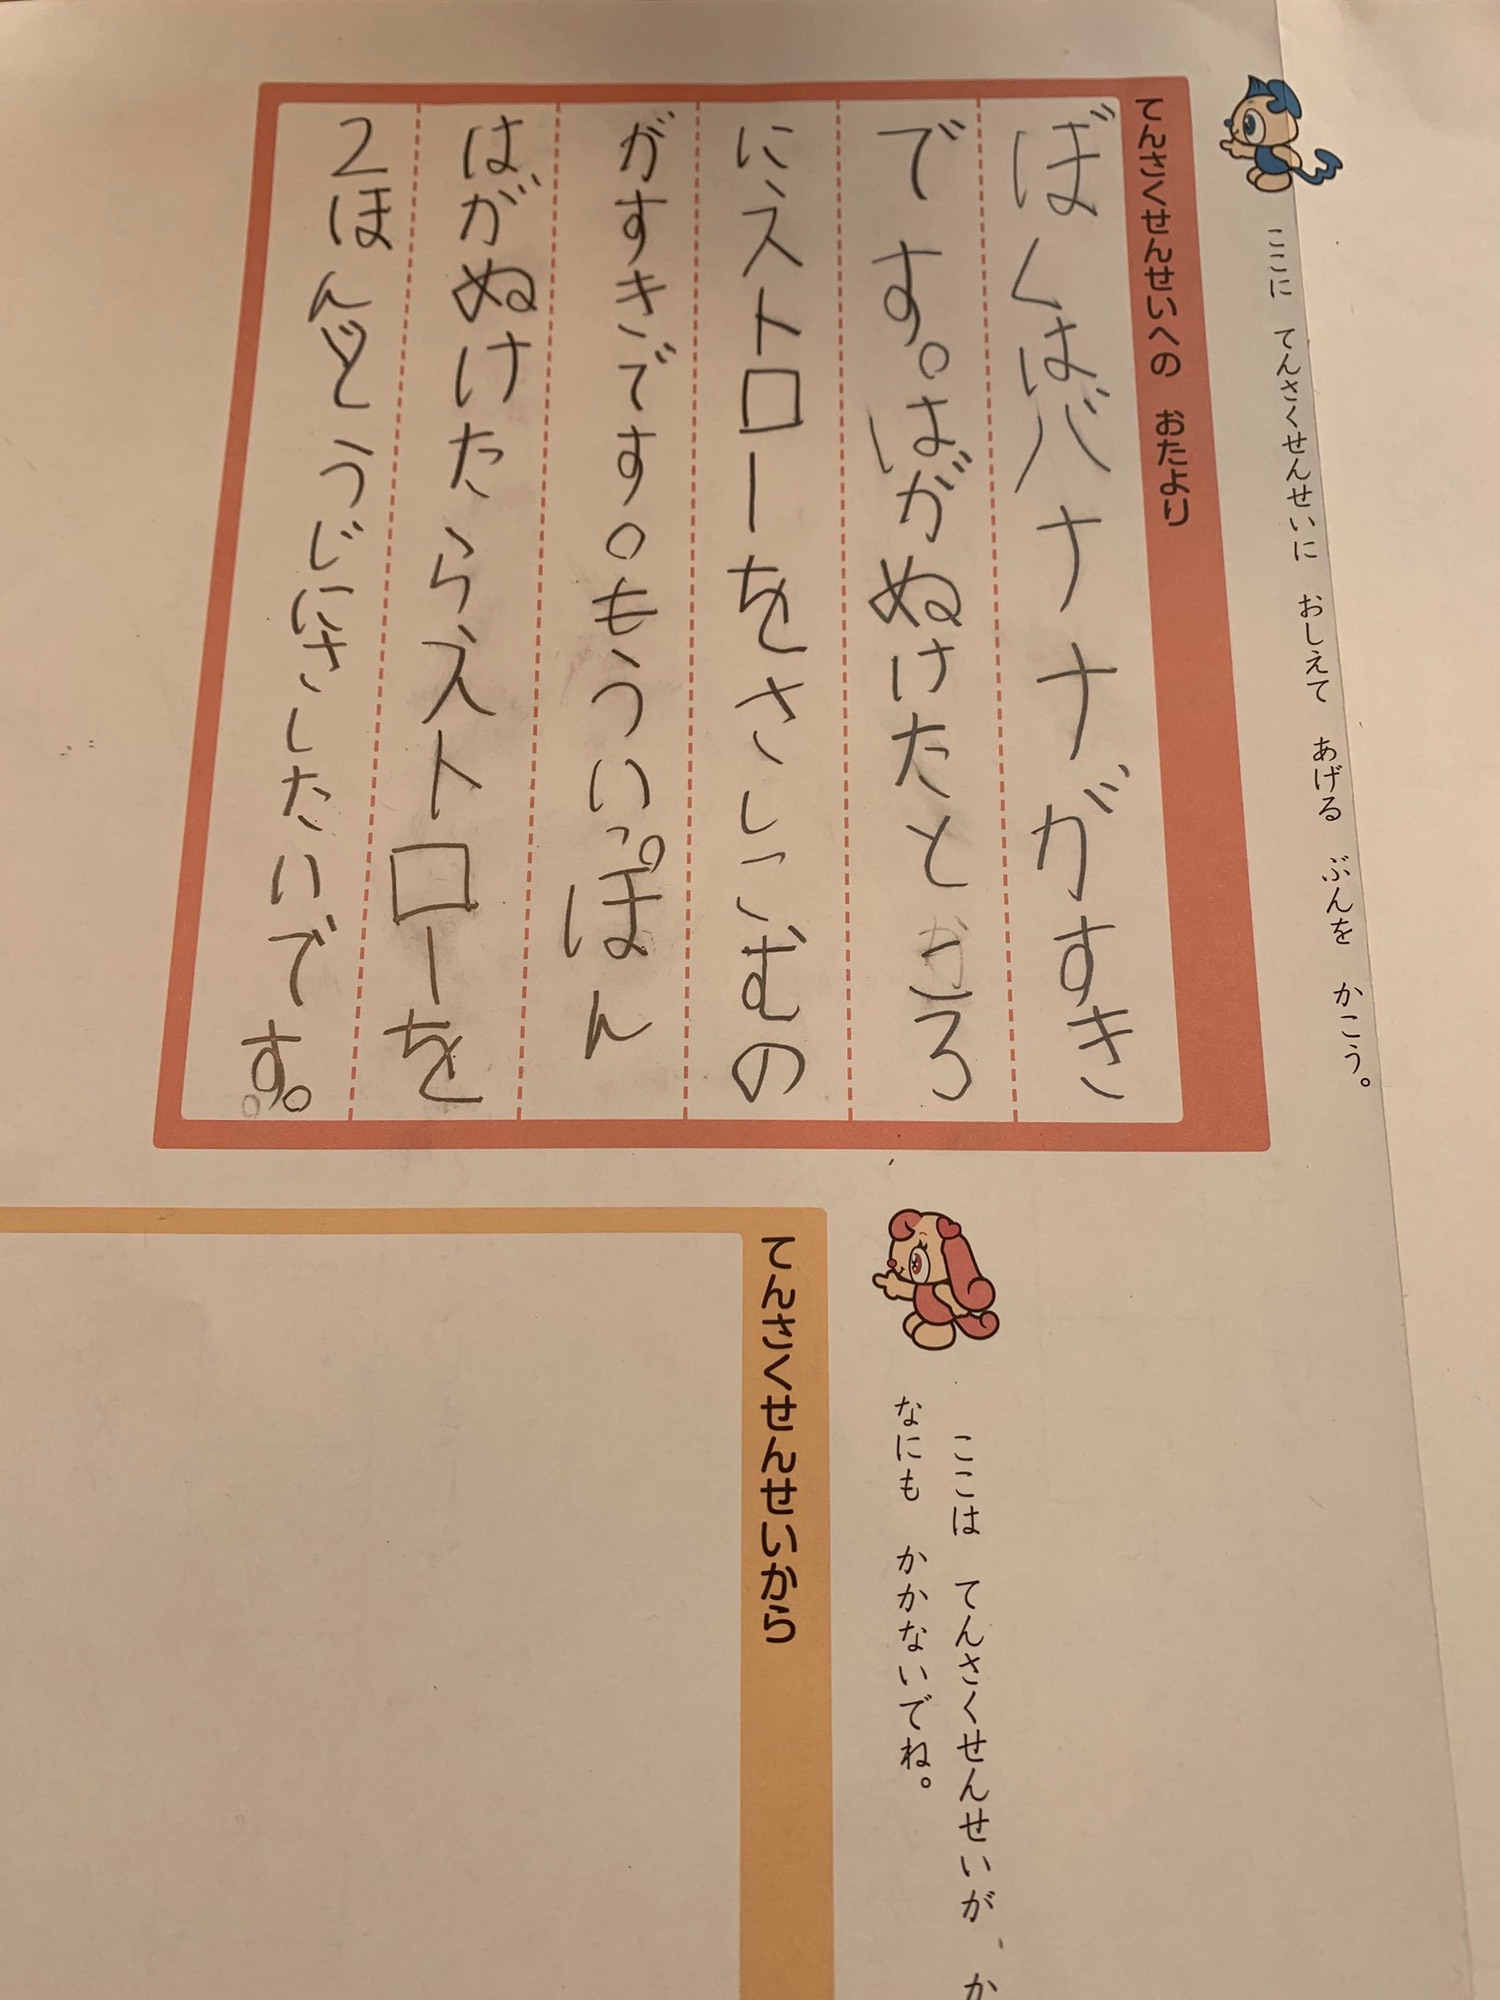 ここに てんさくせんせいに おしえて あげる ぶんを かこう。
てんさくせんせいへの おたより
ぼくはバナナがすき
です。はがぬけたところ
に、ストローをさしこむの
がすきです。もういっぽん
はがぬけたらストローを
2ほんどうじにさしたいです。
ここは てんさくせんせいが、か
なにも かかないでね。
てんさくせんせいから